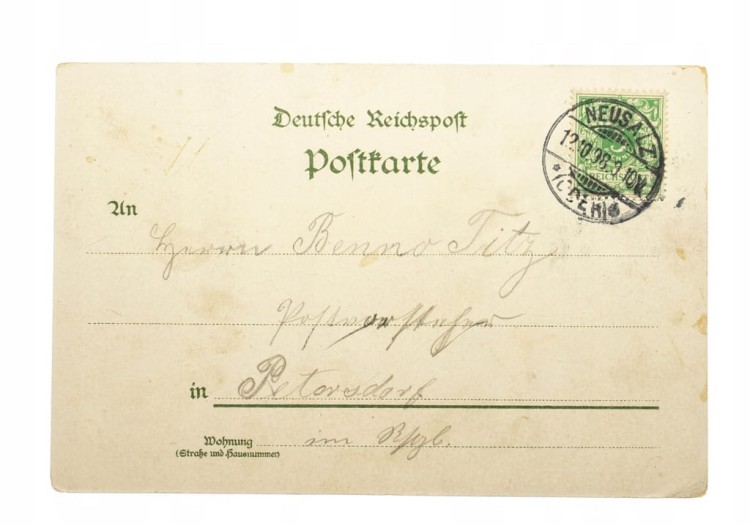 Deutsche Reichspost
Postkarte
NEUSALZ
12.10.98
(ODER)
REICHSPOST
An
Herrn Benno Titz
Postvorsteher
in Petersdorf
im Rsgb.
Wohnung
(Straße und Hausnummer)